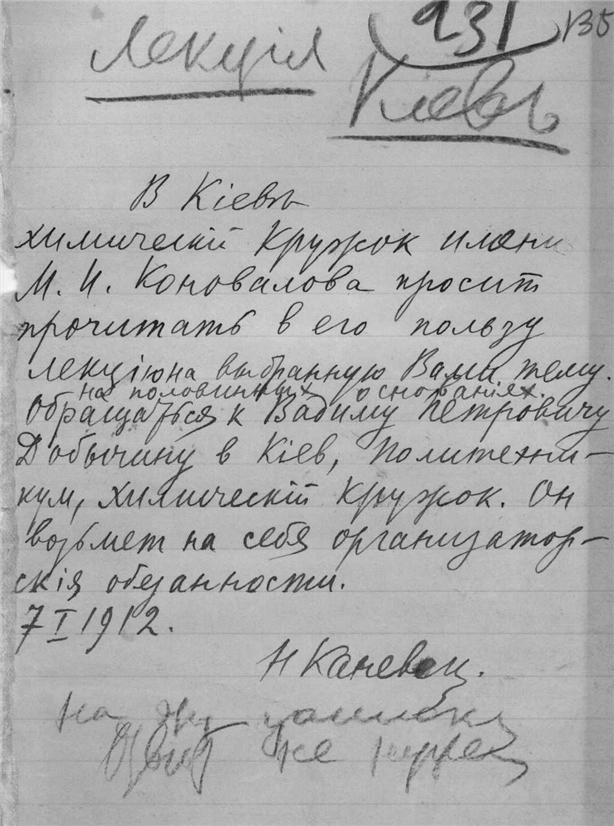 231
130
Лекція
Кіевъ
В Кіевѣ
химическій кружок имени
М. И. Коновалова просит
прочитать в его пользу
лекцію на выбранную Вами тему.
на половинных основаніях.
Обращаться к Вадиму Петровичу
Добычину в Кіев, Политехни-
кум, химическій кружок. Он
возьмет на себя организатор-
скія обязанности.
7 I 1912.
Н Каневец.
На эту
Отвѣт не нужен